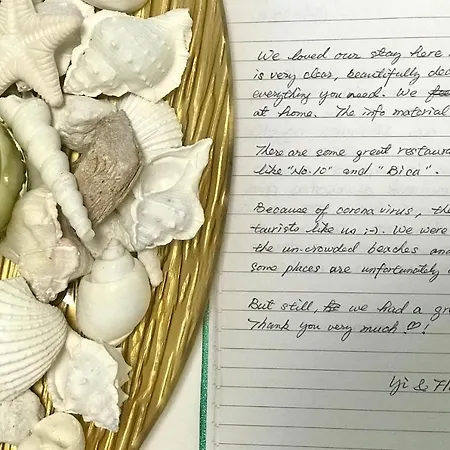 We loved our stay here
is very clear, beautifully dec
everything you need. We
at home. The info material
There are some great restaura
like "No. 10" and "Bica".
Because of corona virus, the
tourists like us :-). We were
the un-crowded beaches and
some places are unfortunately
But still, we had a gre
Thank you very much ♡!
Yi &